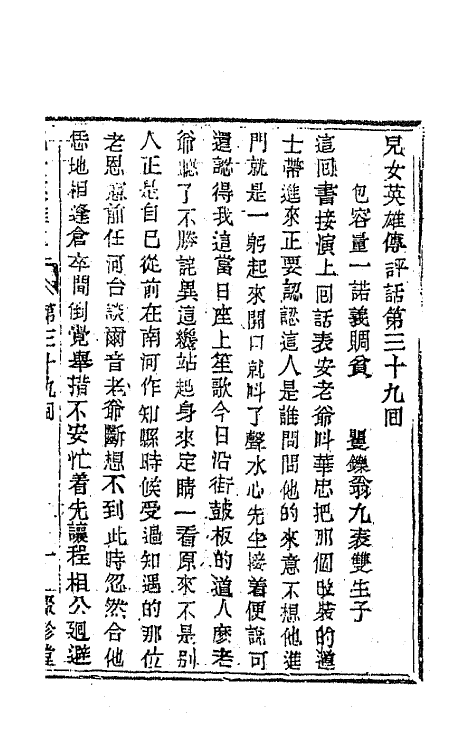 兒女英雄傳評話第三十九回
包容量一諾義賙貧　矍鑠翁九袠雙生子
這回書接演上回話表安老爺叫華忠把那個改裝的道
士帶進來正要認認這人是誰問問他的來意不想他進
門就是一躬起來開口就叫了聲水心先生接着便說可
還認得我這當日座上笙歌今日沿街鼓板的道人麼老
爺聽了不勝詫異這纔站起身來定睛一看原來不是別
人正是自已從前在南河作知縣時候受過知遇的那位
老恩憲前任河台談爾音老爺斷想不到此時忽然合他
恁地相逢倉卒間倒覺舉措不安忙着先讓程相公廻避
第三十九回　一　聚珍堂